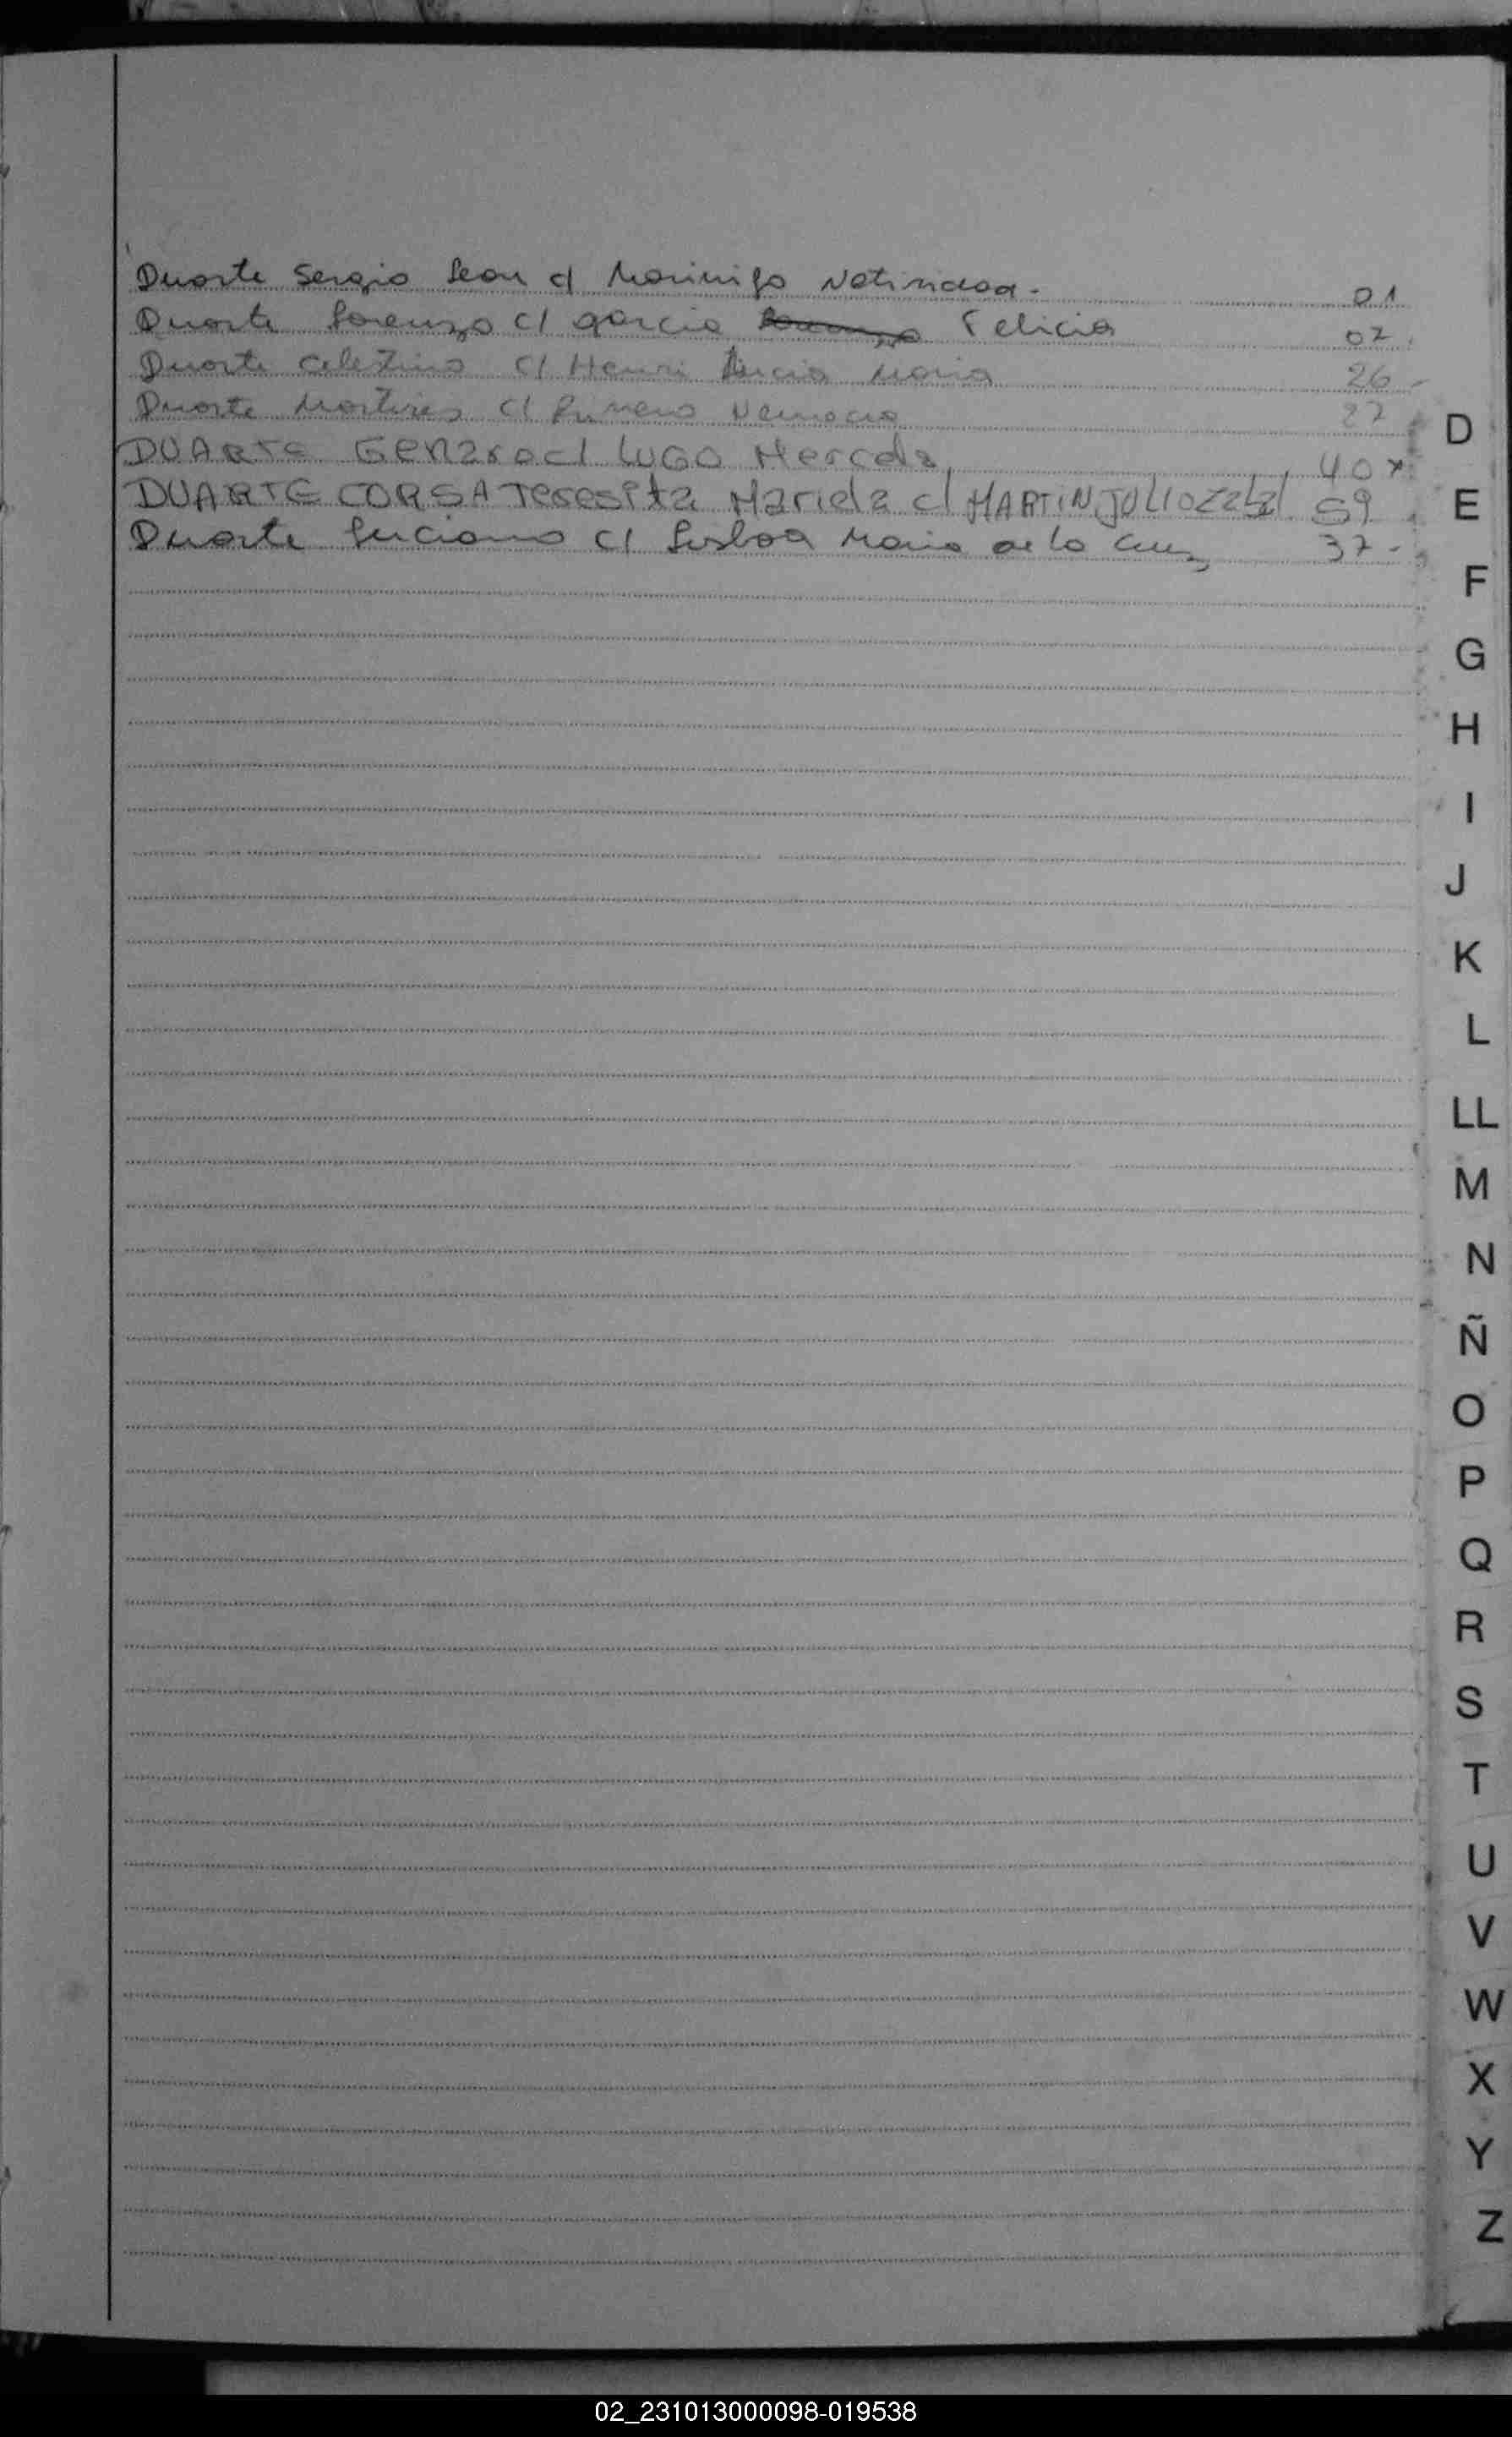 Duarte Sergio Leon c/ Marinigo Natividad. 01
Duarte Lorenzo c/ Garcia Felicia 02
Duarte Celestino c/ Henri Lucia Maria 26
Duarte Martires c/ Romero Nemecia 27
DUARTE GENARO c/ LUGO Merceda 40
DUARTE CORSA Teresita Mariela c/ MARTIN JULIO 59
Duarte Luciano c/ Lisboa Maria de la Cruz 37
D
E
F
G
H
I
J
K
L
LL
M
N
Ñ
O
P
Q
R
S
T
U
V
W
X
Y
Z
02_231013000098-019538